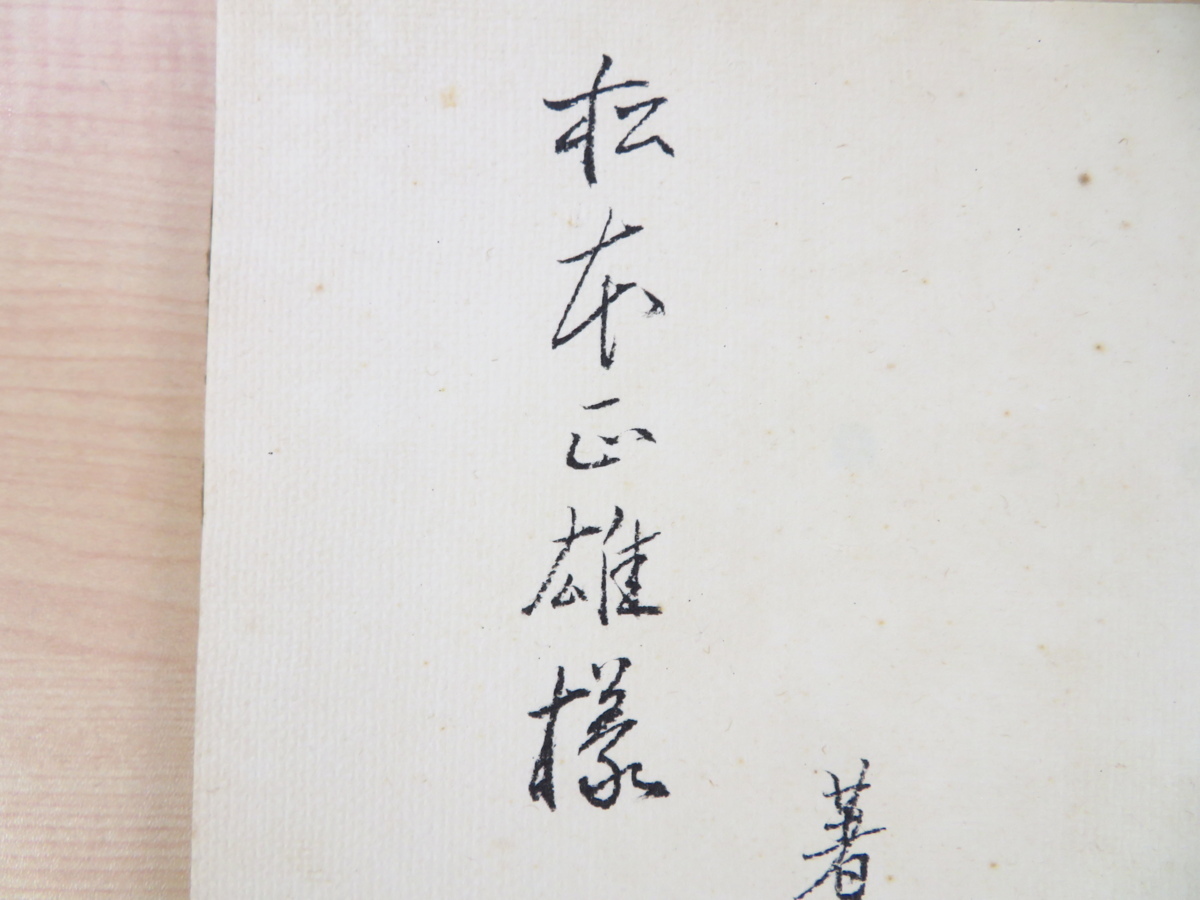 著
松本正雄様